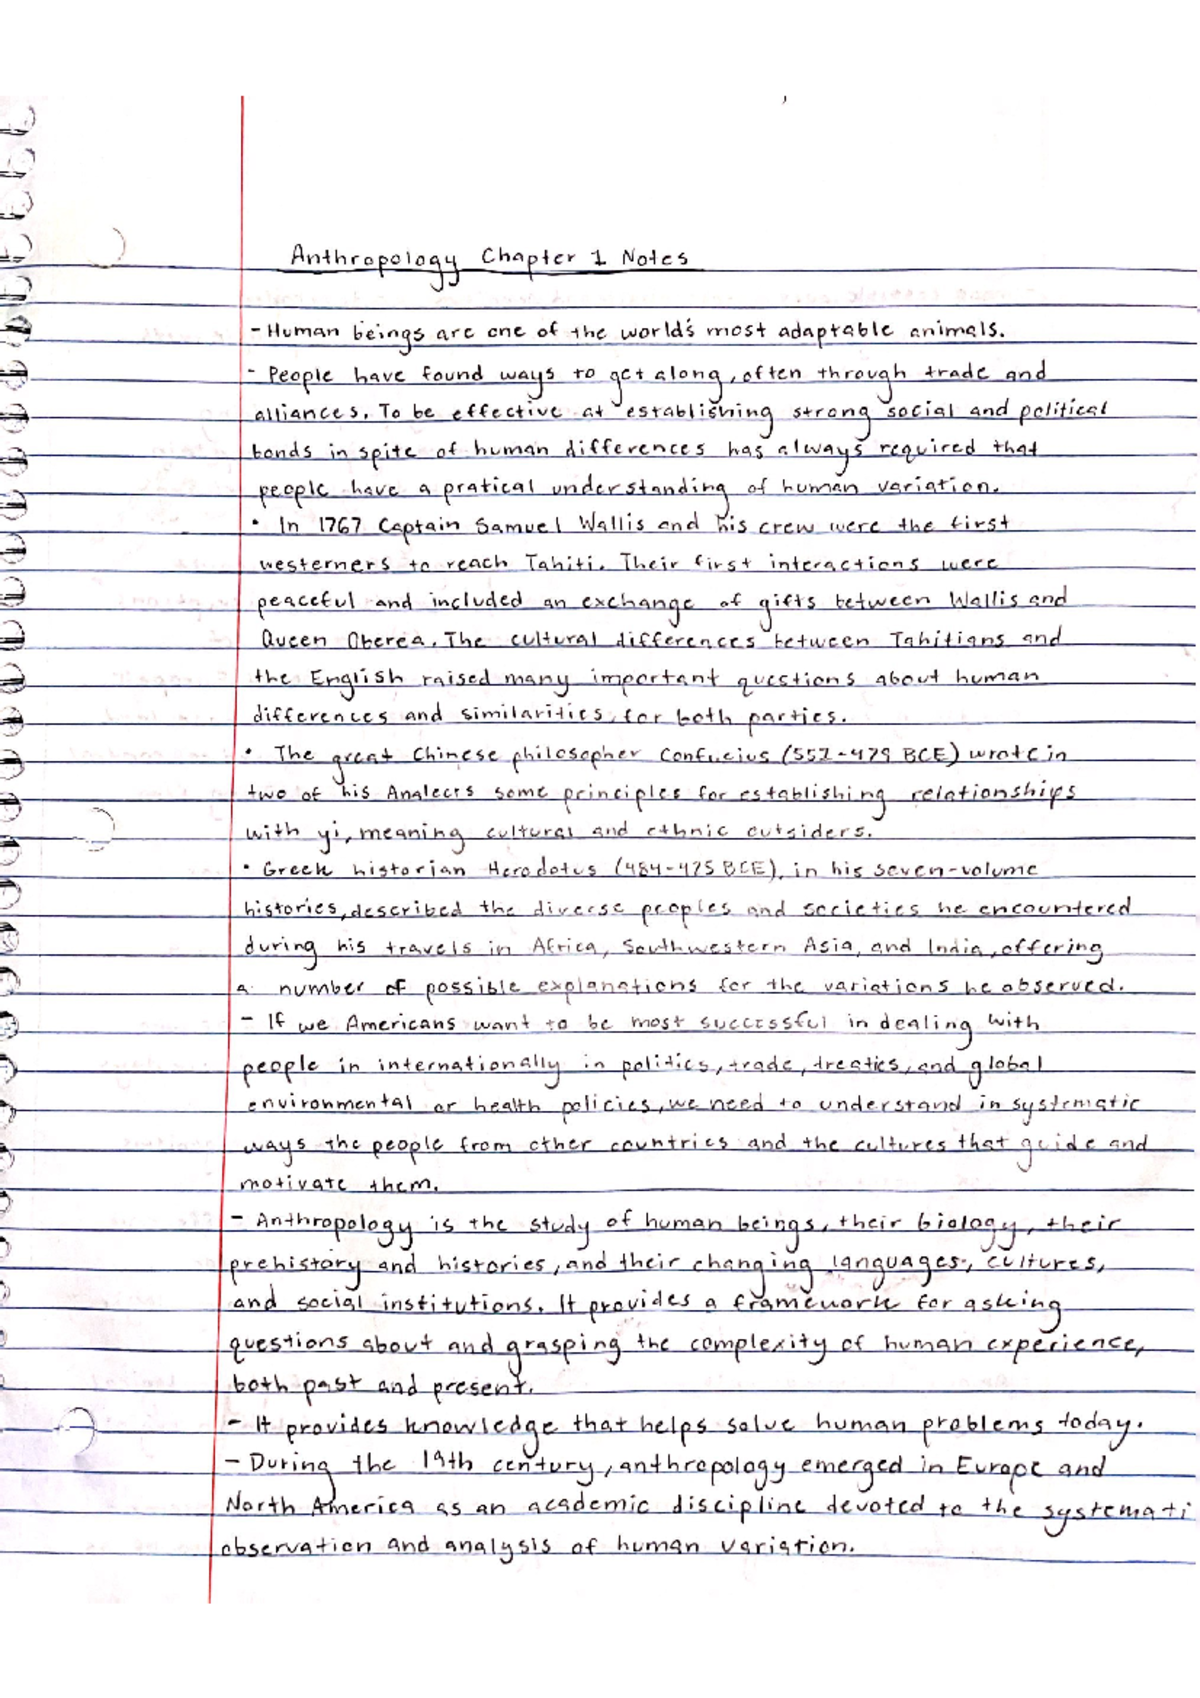 Anthropology Chapter 1 Notes
- Human beings are one of the world's most adaptable animals.
- People have found ways to get along, often through trade and
alliances. To be effective at establishing strong social and political
bonds in spite of human differences has always required that
people have a pratical understanding of human variation.
• In 1767 Captain Samuel Wallis and his crew were the first
westerners to reach Tahiti. Their first interactions were
peaceful and included an exchange of gifts between Wallis and
Queen Oberea. The cultural differences between Tahitians and
the English raised many important questions about human
differences and similarities, for both parties.
• The great Chinese philosopher Confucius (551-479 BCE) wrote in
two of his Analects some principles for establishing relationships
with yi, meaning cultural and ethnic outsiders.
• Greek historian Herodotus (484-425 BCE), in his seven-volume
histories, described the diverse peoples and societies he encountered
during his travels in Africa, Southwestern Asia, and India, offering
a number of possible explanations for the variations he observed.
- If we Americans want to be most successful in dealing with
people in internationally in politics, trade, treaties, and global
environmental or health policies, we need to understand in systematic
ways the people from other countries and the cultures that guide and
motivate them.
- Anthropology is the study of human beings, their biology, their
prehistory and histories, and their changing languages, cultures,
and social institutions. It provides a framework for asking
questions about and grasping the complexity of human experience,
both past and present.
- It provides knowledge that helps solve human problems today.
- During the 19th century, anthropology emerged in Europe and
North America as an academic discipline devoted to the systemati
observation and analysis of human variation.